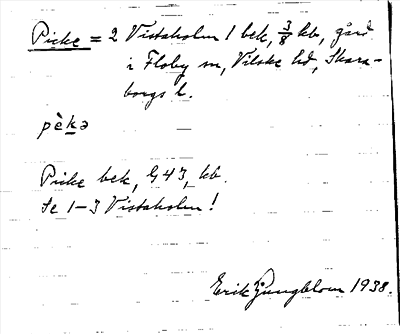 Picke = 2 Vistaholm 1 bek, 3/8 kb, gård
i Floby sn, Vilske hd, Skara-
borgs l.
pèkə
Picke bek, G43, kb.
Se 1-3 Vistaholm!
Erik Ljungblom 1938.